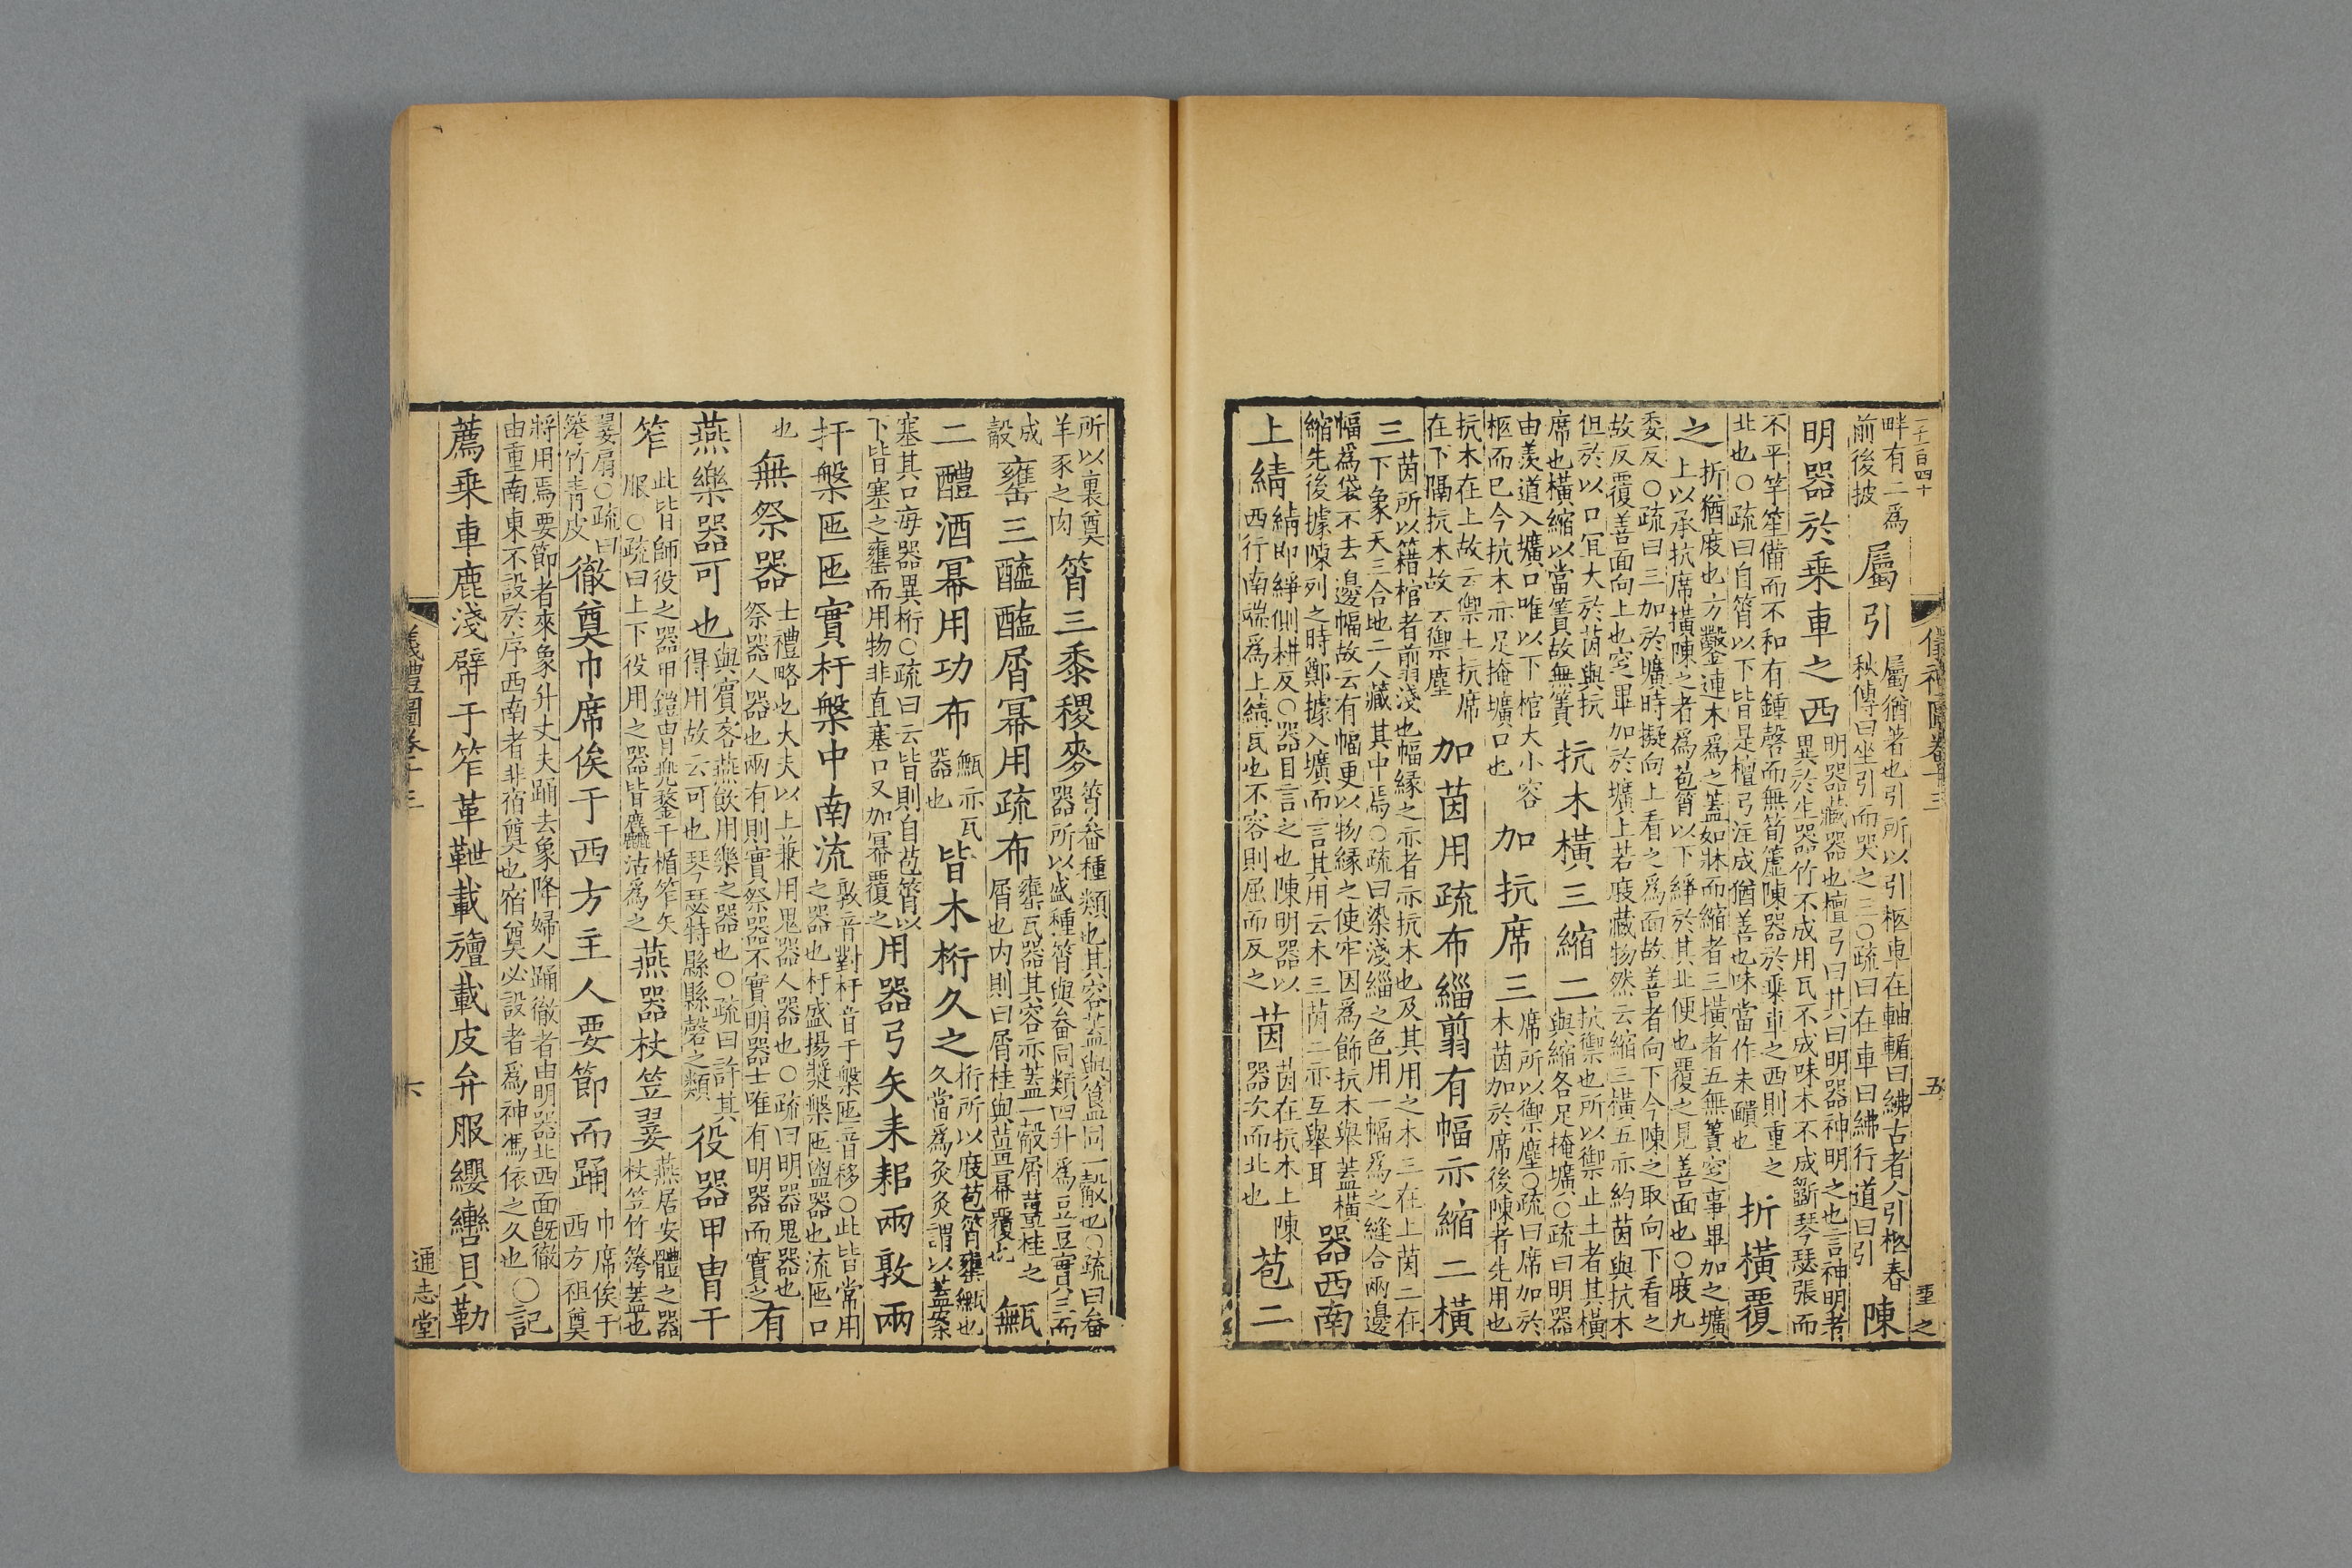 二十二百四十
儀禮圖卷十三
五
重之
畔有二爲
前後披
屬引
屬猶著也引所以引柩車在軸輴曰紼古者人引柩春
秋傳曰坐引而哭之三○疏曰在車曰紼行道曰引
陳
明器於乗車之西
明器藏器也檀弓曰其曰明器神明之也言神明者
異於生器竹不成用瓦不成味木不成斲琴瑟張而
不平竽笙備而不和有鍾磬而無筍簴陳器於乗車之西則重之
北也○疏曰自筲以下皆是檀弓注成猶善也味當作沬靧也
折橫覆
之
折猶庪也方鑿連木爲之蓋如牀而縮者三橫者五無簀窆事畢加之壙
上以承抗席橫陳之者爲苞筲以下綪於其北便也覆之見善面也○庪九
委反○疏曰三加於壙時擬向上看之爲面故善者向下今陳之取向下看之
故反覆善面向上也窆畢加於壙上若庪藏物然云縮三橫五亦約茵與抗木
但於以口冝大於茵與抗
席也橫縮以當簀故無簀
抗木橫三縮二
抗禦也所以禦止土者其橫
與縮各足掩壙○疏曰明器
由羨道入壙口唯以下棺大小容
柩而已今抗木亦足掩壙口也
加抗席三
席所以禦塵○疏曰席加於
木茵加於席後陳者先用也
抗木在上故云禦土抗席
在下隔抗木故云禦塵
加茵用疏布緇翦有幅亦縮二橫
三
茵所以籍棺者翦淺也幅緣之亦者亦抗木也及其用之木三在上茵二在
下象天三合地二人藏其中焉○疏曰染淺緇之色用一幅爲之縫合兩邊
幅爲袋不去邊幅故云有幅更以物緣之使牢因爲飾抗木與蓋橫
縮先後據陳列之時鄭據入壙而言其用云木三茵二亦互舉耳
器西南
上綪
綪即綪側耕反○器目言之也陳明器以
西行南端爲上綪屈也不容則屈而反之
茵
茵在抗木上陳
器次而北也
苞二
所以裹奠
羊豕之肉
筲三黍稷麥
筲畚種類也其容蓋與簋同一觳也○疏曰畚
器所以盛種筲與畚同類四升爲豆豆實三而
成
觳
罋三醯醢屑冪用疏布
罋瓦器其容亦蓋一觳屑薑桂之
屑也内則曰屑桂與薑冪覆也
甒
二醴酒冪用功布
甒亦瓦
器也
皆木桁久之
桁所以庪苞筲罋甒也
久當爲灸灸謂以蓋案
塞其口每器異桁○疏曰云皆則自苞筲以
下皆塞之罋甒而用物非直塞口又加冪覆之
用器弓矢耒耜兩敦兩
杅槃匜匜實杅槃中南流
敦音對杅音于槃匜音移○此皆常用
之器也杅盛湯漿槃匜盥器也流匜口
也
無祭器
士禮略也大夫以上兼用鬼器人器也○疏曰明器鬼器也
祭器人器也兩有則實祭器不實明器士唯有明器而實之
有
燕樂器可也
與賓客燕飲用樂之器也○疏曰許其
得用故云可也琴瑟特縣縣磬之類
役器甲胄干
笮
此皆師役之器甲鎧胄兜鍪干楯笮矢
服○疏曰上下役用之器皆麤沽爲之
燕器杖笠翣
燕居安體之器
杖笠竹䇭蓋也
翣扇○疏曰
䇭竹青皮
徹奠巾席俟于西方主人要節而踊
巾席俟于
西方祖奠
將用焉要節者來象升丈夫踊去象降婦人踊徹者由明器北西面既徹
由重南東不設於序西南者非宿奠也宿奠必設者爲神馮依之久也
○記
薦乗車鹿淺幦干笮革靾載旜載皮弁服纓轡貝勒
儀禮圖卷十三
六
通志堂